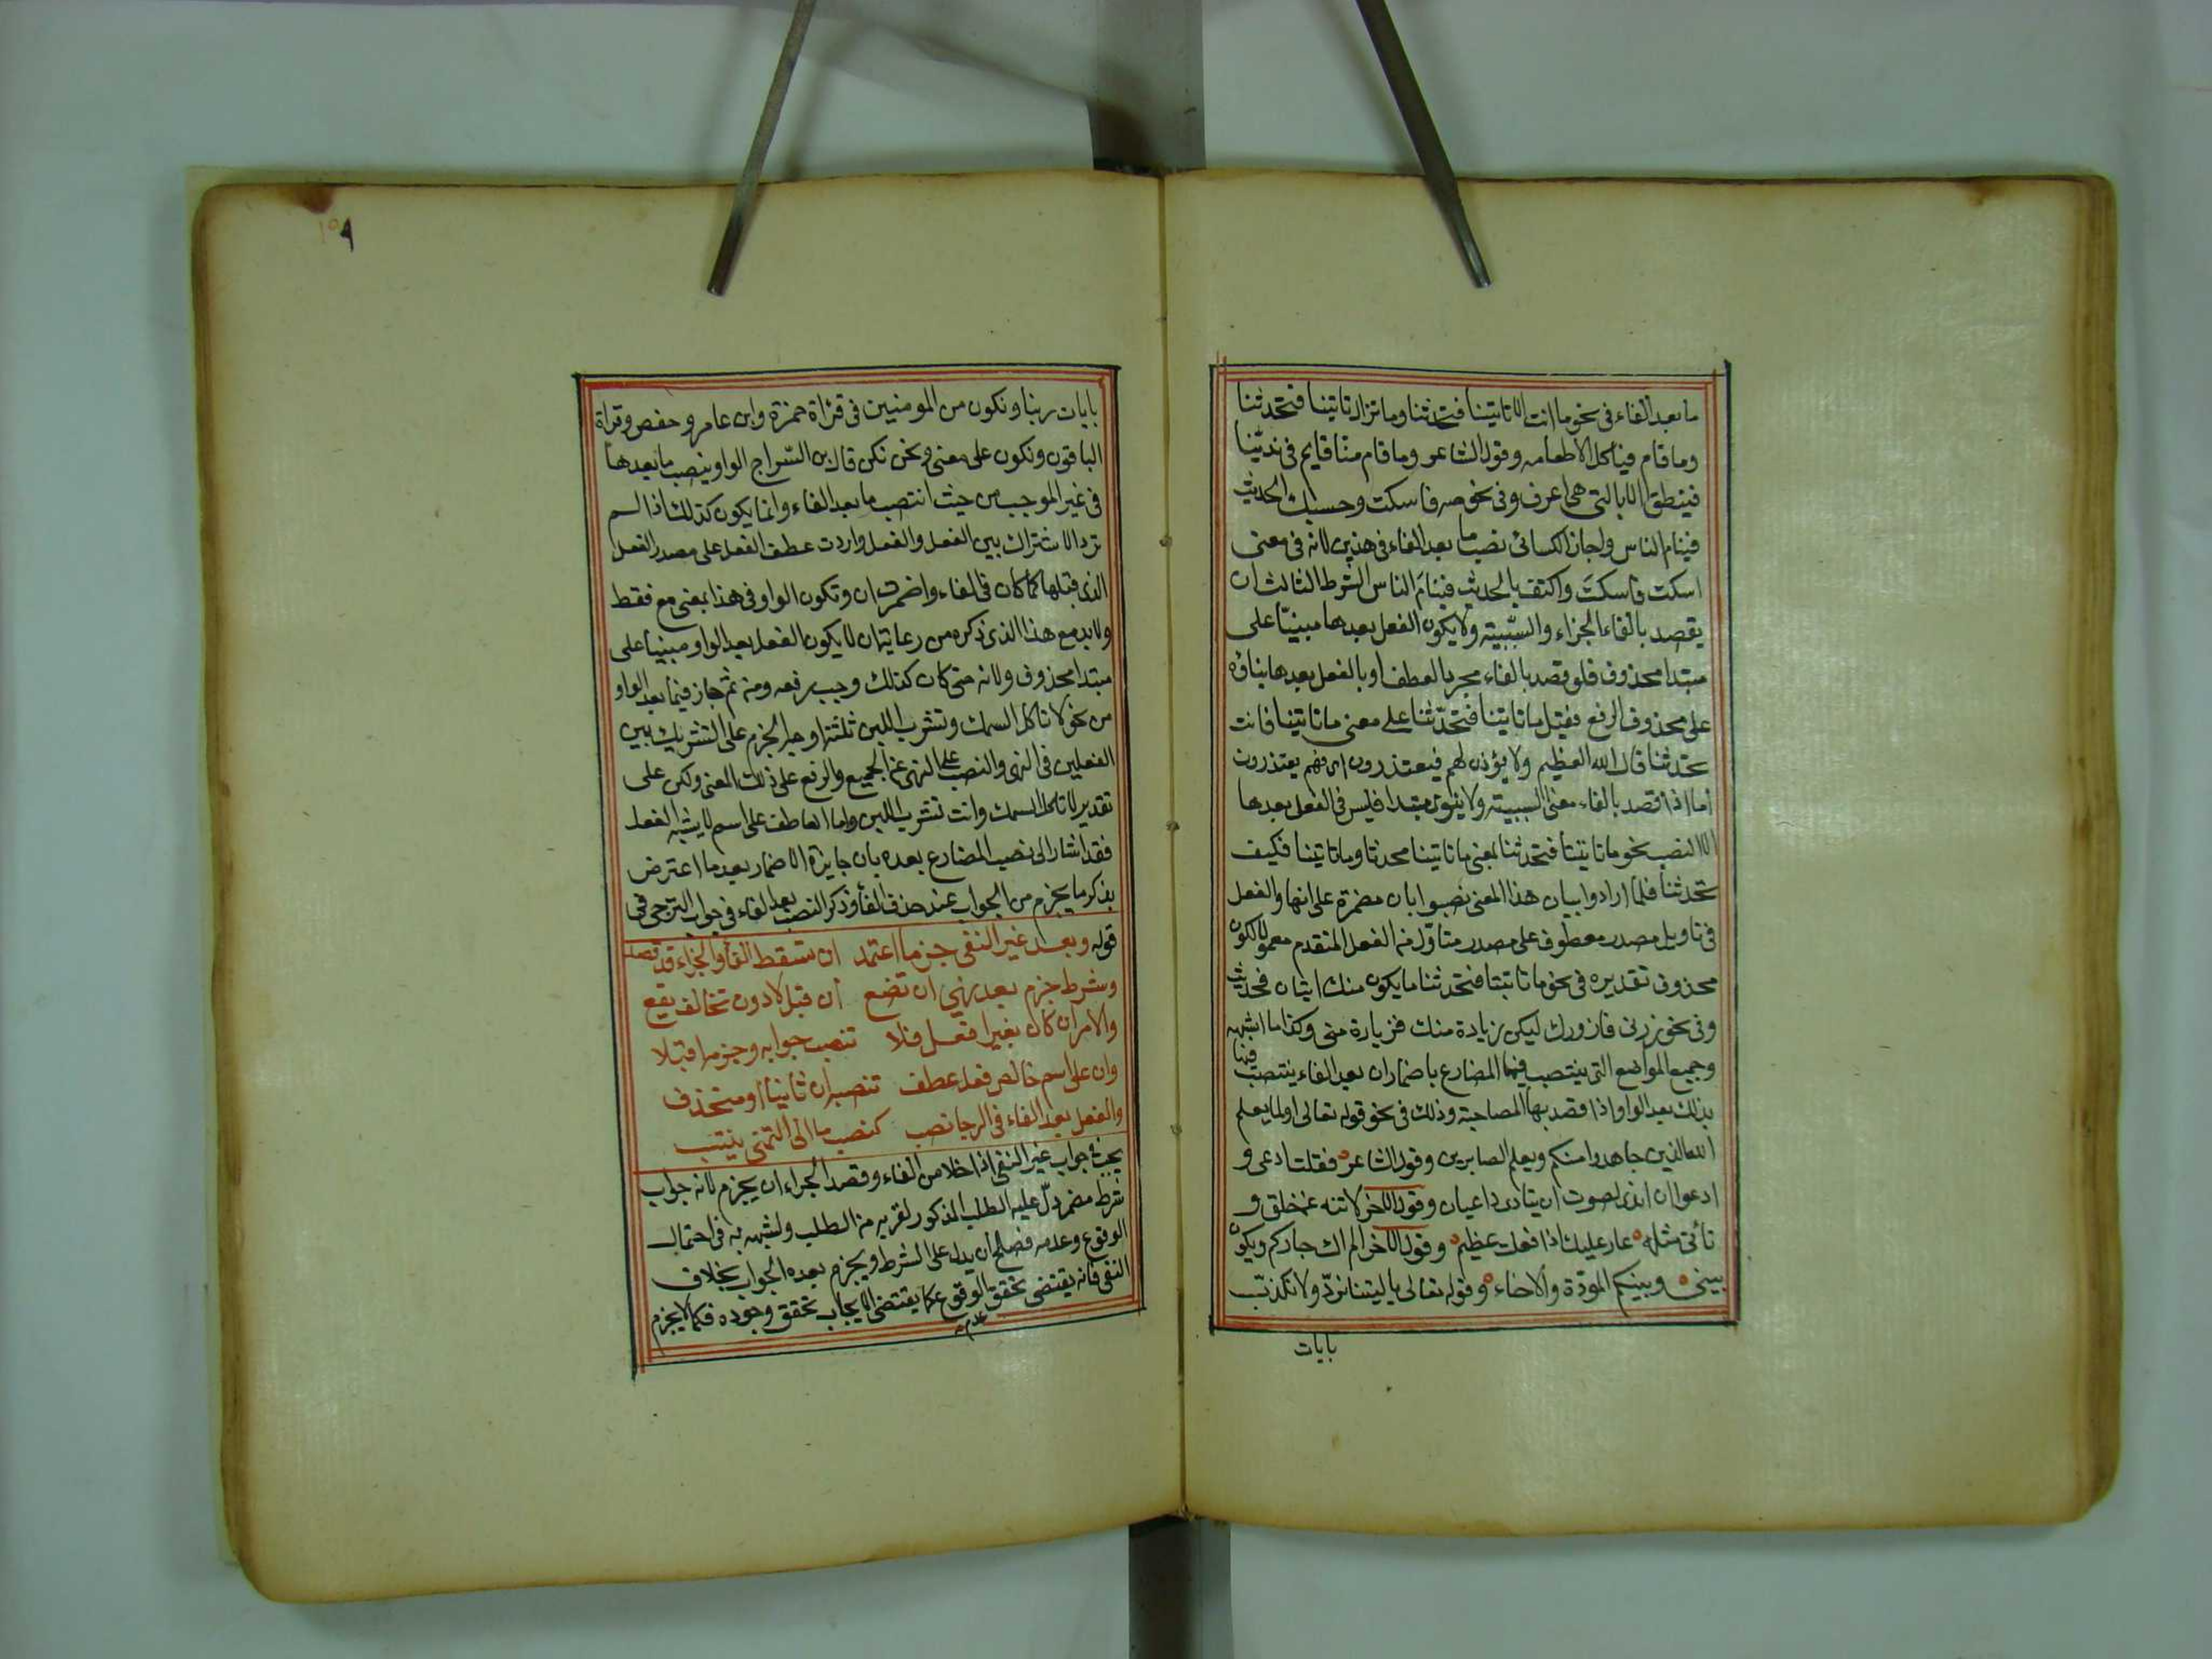 ما بعد الفاء في نحو ما انت الا تاتينا فتحدثنا وما تزال تاتينا فتحدثنا
وما قام فياكل الا طعامه وقول الشاعر وما قام منا قايم في ندينا
فينطق الا بالتي هي اعرف وفي نحو صه فاسكت وحسبك الحديث
فينام الناس واجاز الكسائي نصب ما بعد الفاء في هذين لانه في معنى
اسكت فاسكت واكتف بالحديث فينام الناس الشرط الثالث ان
يقصد بالفاء الجزاء والسببية ولا يكون الفعل بعدها مبنيا على
مبتدا محذوف فلو قصد بالفاء مجرد العطف او بالفعل بعدها بناؤه
على محذوف الرفع فقيل ما تاتينا فتحدثنا على معنى ما تاتينا فانت
تحدثنا قال الله العظيم ولا يؤذن لهم فيعتذرون اي فهم يعتذرون
اما اذا قصد بالفاء معنى السببية ولا ينوى مبتدا فليس في الفعل بعدها
الا النصب نحو ما تاتينا فتحدثنا بمعنى ما تاتينا محدثا وما تاتينا فكيف
تحدثنا فلما ارادوا بيان هذا المعنى نصبوا بان مضمرة على انها والفعل
في تاويل مصدر معطوف على مصدر متاول من الفعل المتقدم معمولا لكون
محذوف تقديره في نحو ما تاتينا فتحدثنا ما يكون منك اتيان فحديث
وفي نحو زرني فازورك ليكن زيادة منك فزيارة مني وكذا ما اشبهه
وجميع المواضع التي ينتصب فيها المضارع باضمار ان بعد الفاء ينتصب فيها
بذلك بعد الواو اذا قصد بها المصاحبة وذلك في نحو قوله تعالى ولما يعلم
الله الذين جاهدوا منكم ويعلم الصابرين وقول الشاعر فقلت ادعي و
ادعوا ان اندى لصوت ان ينادي داعيان وقول الاخر لا تنه عن خلق و
تأتي مثله عار عليك اذا فعلت عظيم وقول الاخر الم اك جاركم ويكون
بيني وبينكم المودة والاخاء وقوله تعالى يا ليتنا نرد ولا نكذب
بايات
١٥٩
بايات ربنا ونكون من المومنين في قراة حمزة وابن عامر وحفص وقراة
الباقون ونكون على معنى ونحن نكن قال بن السراج الواو ينصب ما بعدها
في غير الموجب من حيث انتصب ما بعد الفاء وانما يكون كذلك اذا لم
ترد الاشتراك بين الفعل والفعل واردت عطف الفعل على مصدر الفعل
الذي قبلها كما كان في الفاء واضمرت ان وتكون الواو في هذا بمعنى مع فقط
ولا بد مع هذا الذي ذكره من رعاية ان لا يكون الفعل بعد الواو مبنيا على
مبتدا محذوف ولانه متى كان كذلك وجب رفعه ومن ثم جاز فيما بعد الواو
من نحو لا تاكل السمك وتشرب اللبن ثلثة اوجه الجزم على التشريك بين
الفعلين في النهي والنصب على النهي عن الجميع والرفع على ذلك المعنى ولكن على
تقدير لا تاكل السمك وانت تشرب اللبن واما العاطف على اسم لا يشبه الفعل
فقد اشار الى نصب المضارع بعده بان جايزة الاضمار بعد ما اعترض
بذكر ما يجزم من الجواب عند حذف الفاء وذكر النصب بعد الفاء في جواب الترجي في
قوله وبعد غير النفي جزما اعتمد ان تسقط الفا والجزاء قد قصد
وشرط جزم بعد نهي ان تضع ان قبل لا دون تخالف يقع
والامر ان كان بغير افعل فلا تنصب جوابه وجزمه اقبلا
وان على اسم خالص فعل عطف تنصبه ان ثابتا او منحذف
والفعل بعد الفاء في الرجا نصب كنصب ما الى التمني ينتسب
يجب في جواب غير النفي اذا خلا من الفاء وقصد الجزاء ان يجزم لانه جواب
شرط مضمر دل عليه الطلب المذكور لقربه من الطلب ولشبهه به في احتمال
الوقوع وعدمه فصلح ان يدل على الشرط ويجزم بعده الجواب بخلاف
النفي فانه يقتضي تحقق الوقوع كما يقتضي الايجاب تحقق وجوده فكما لا يجزم
عدم